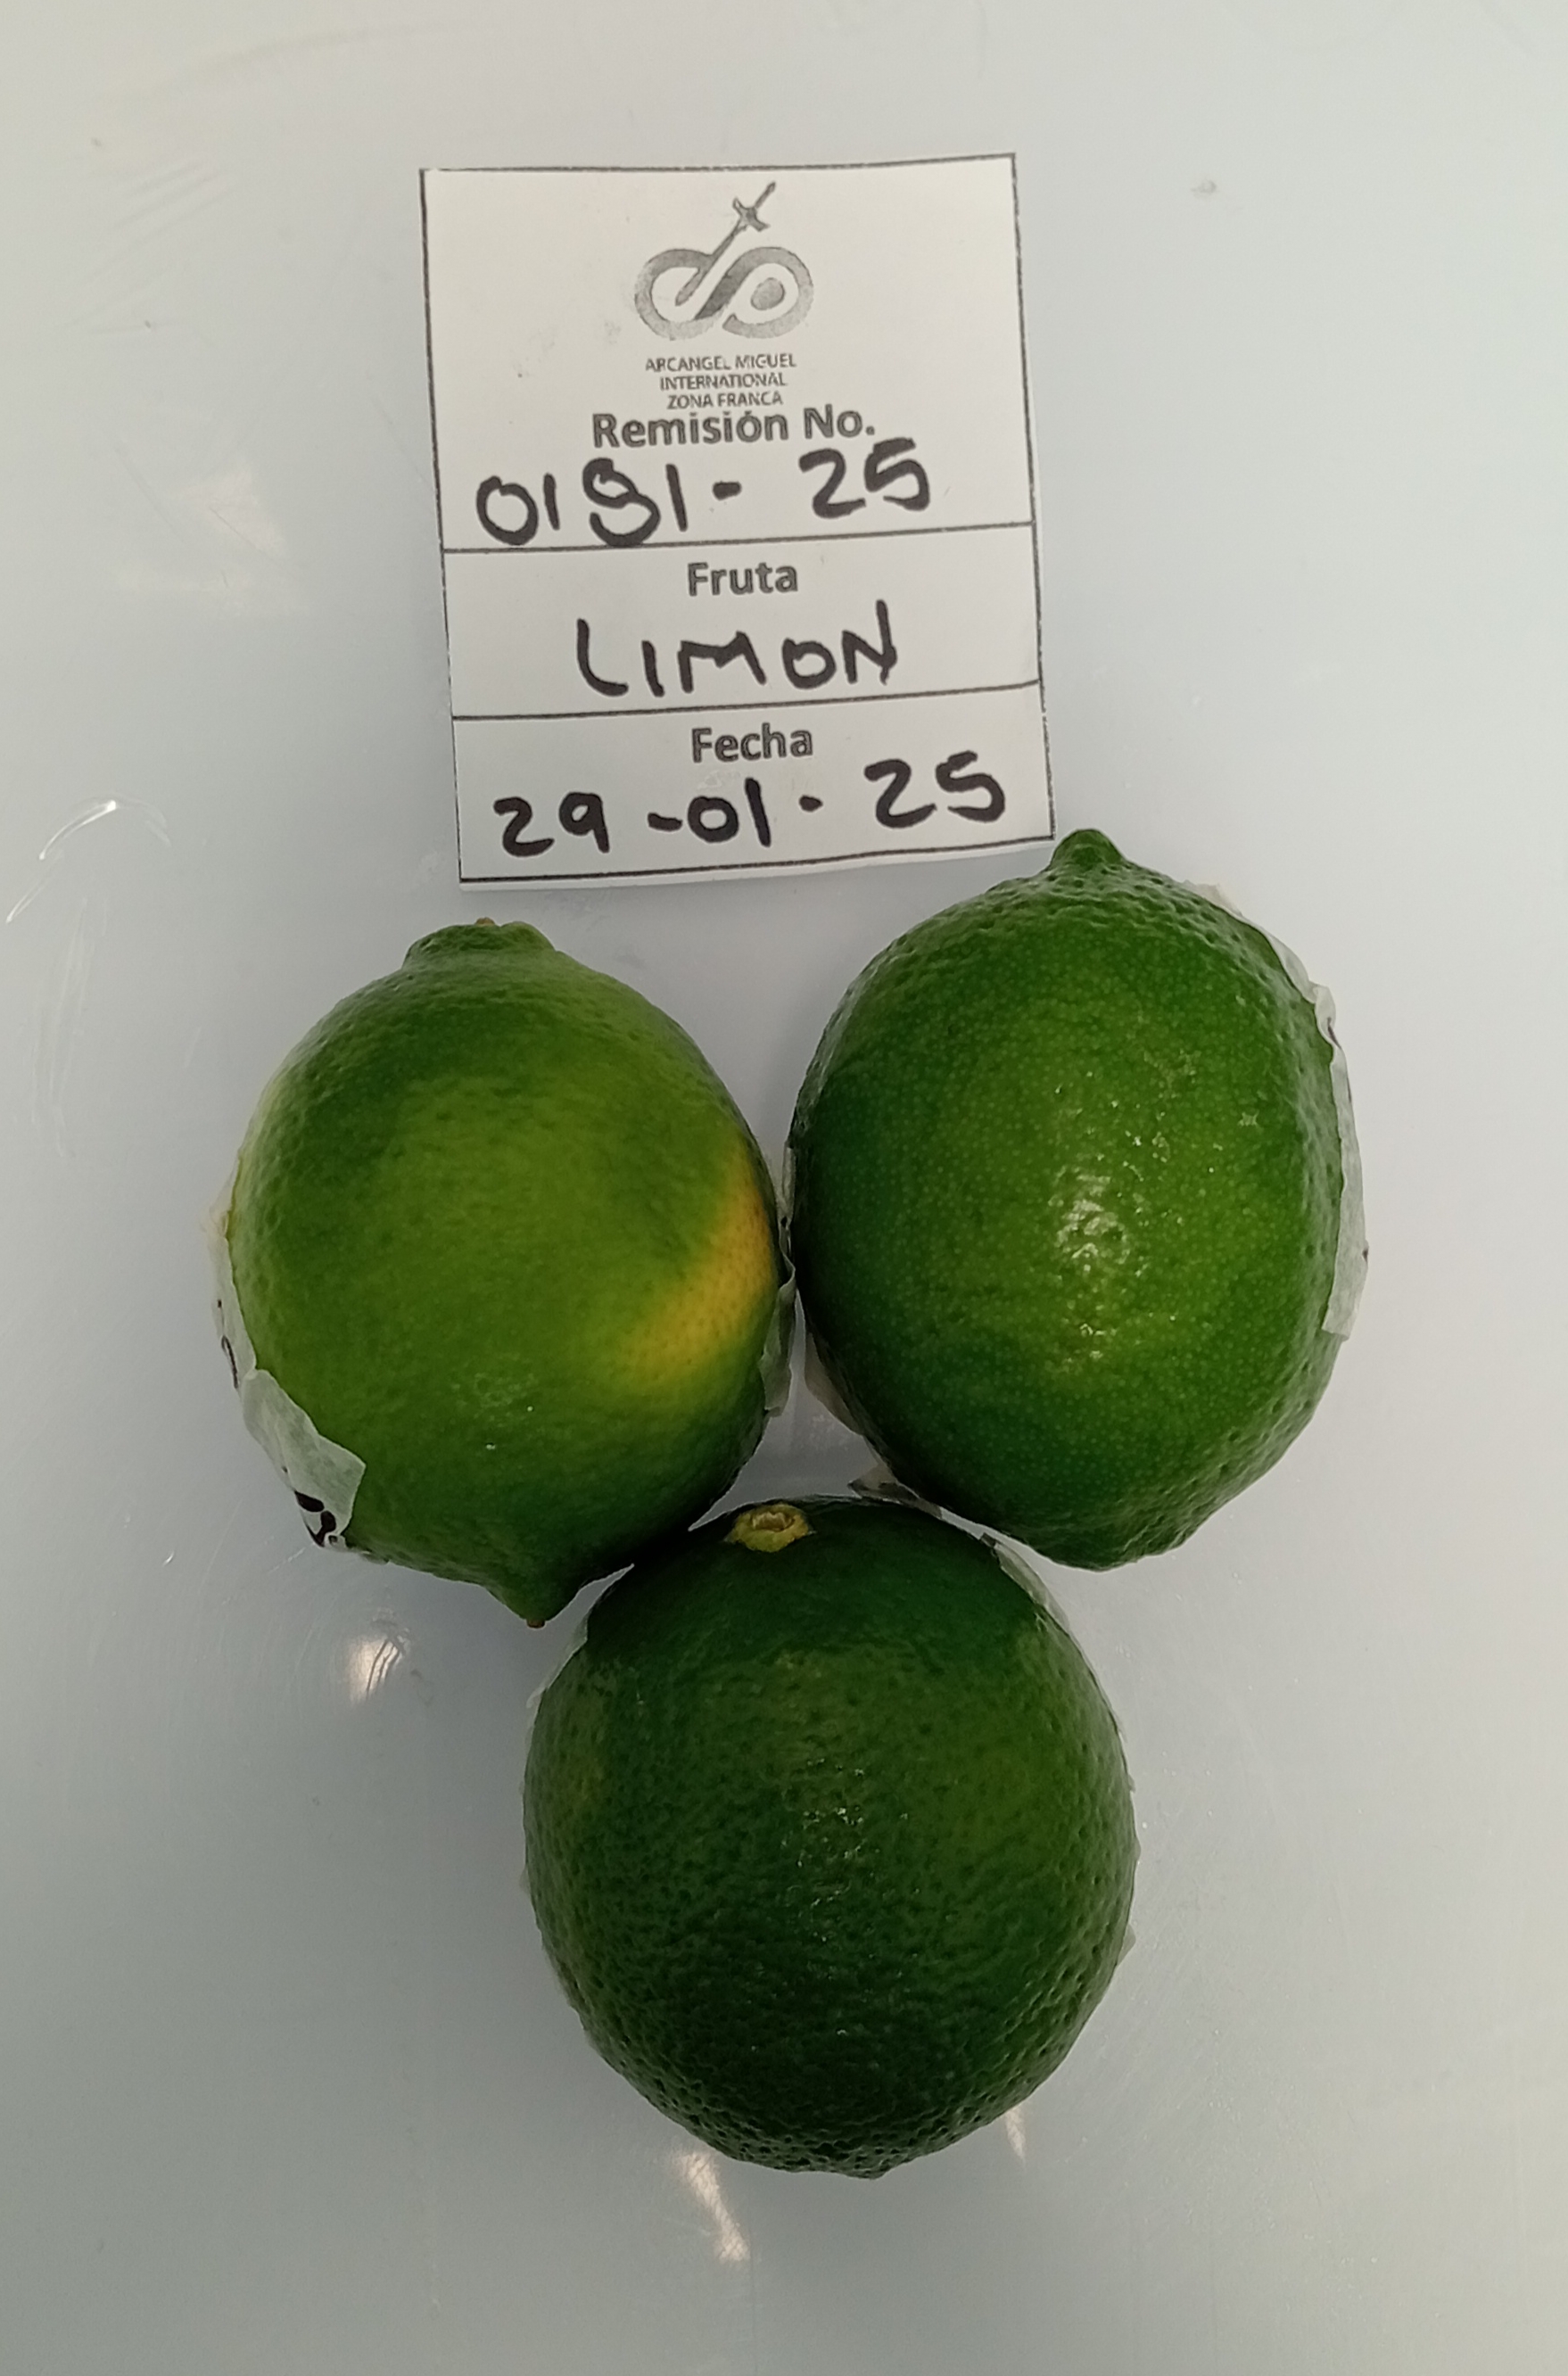 ARCANGEL MIGUEL
INTERNATIONAL
ZONA FRANCA
Remisión No.
Fruta
LIMON
Fecha
29-01-25